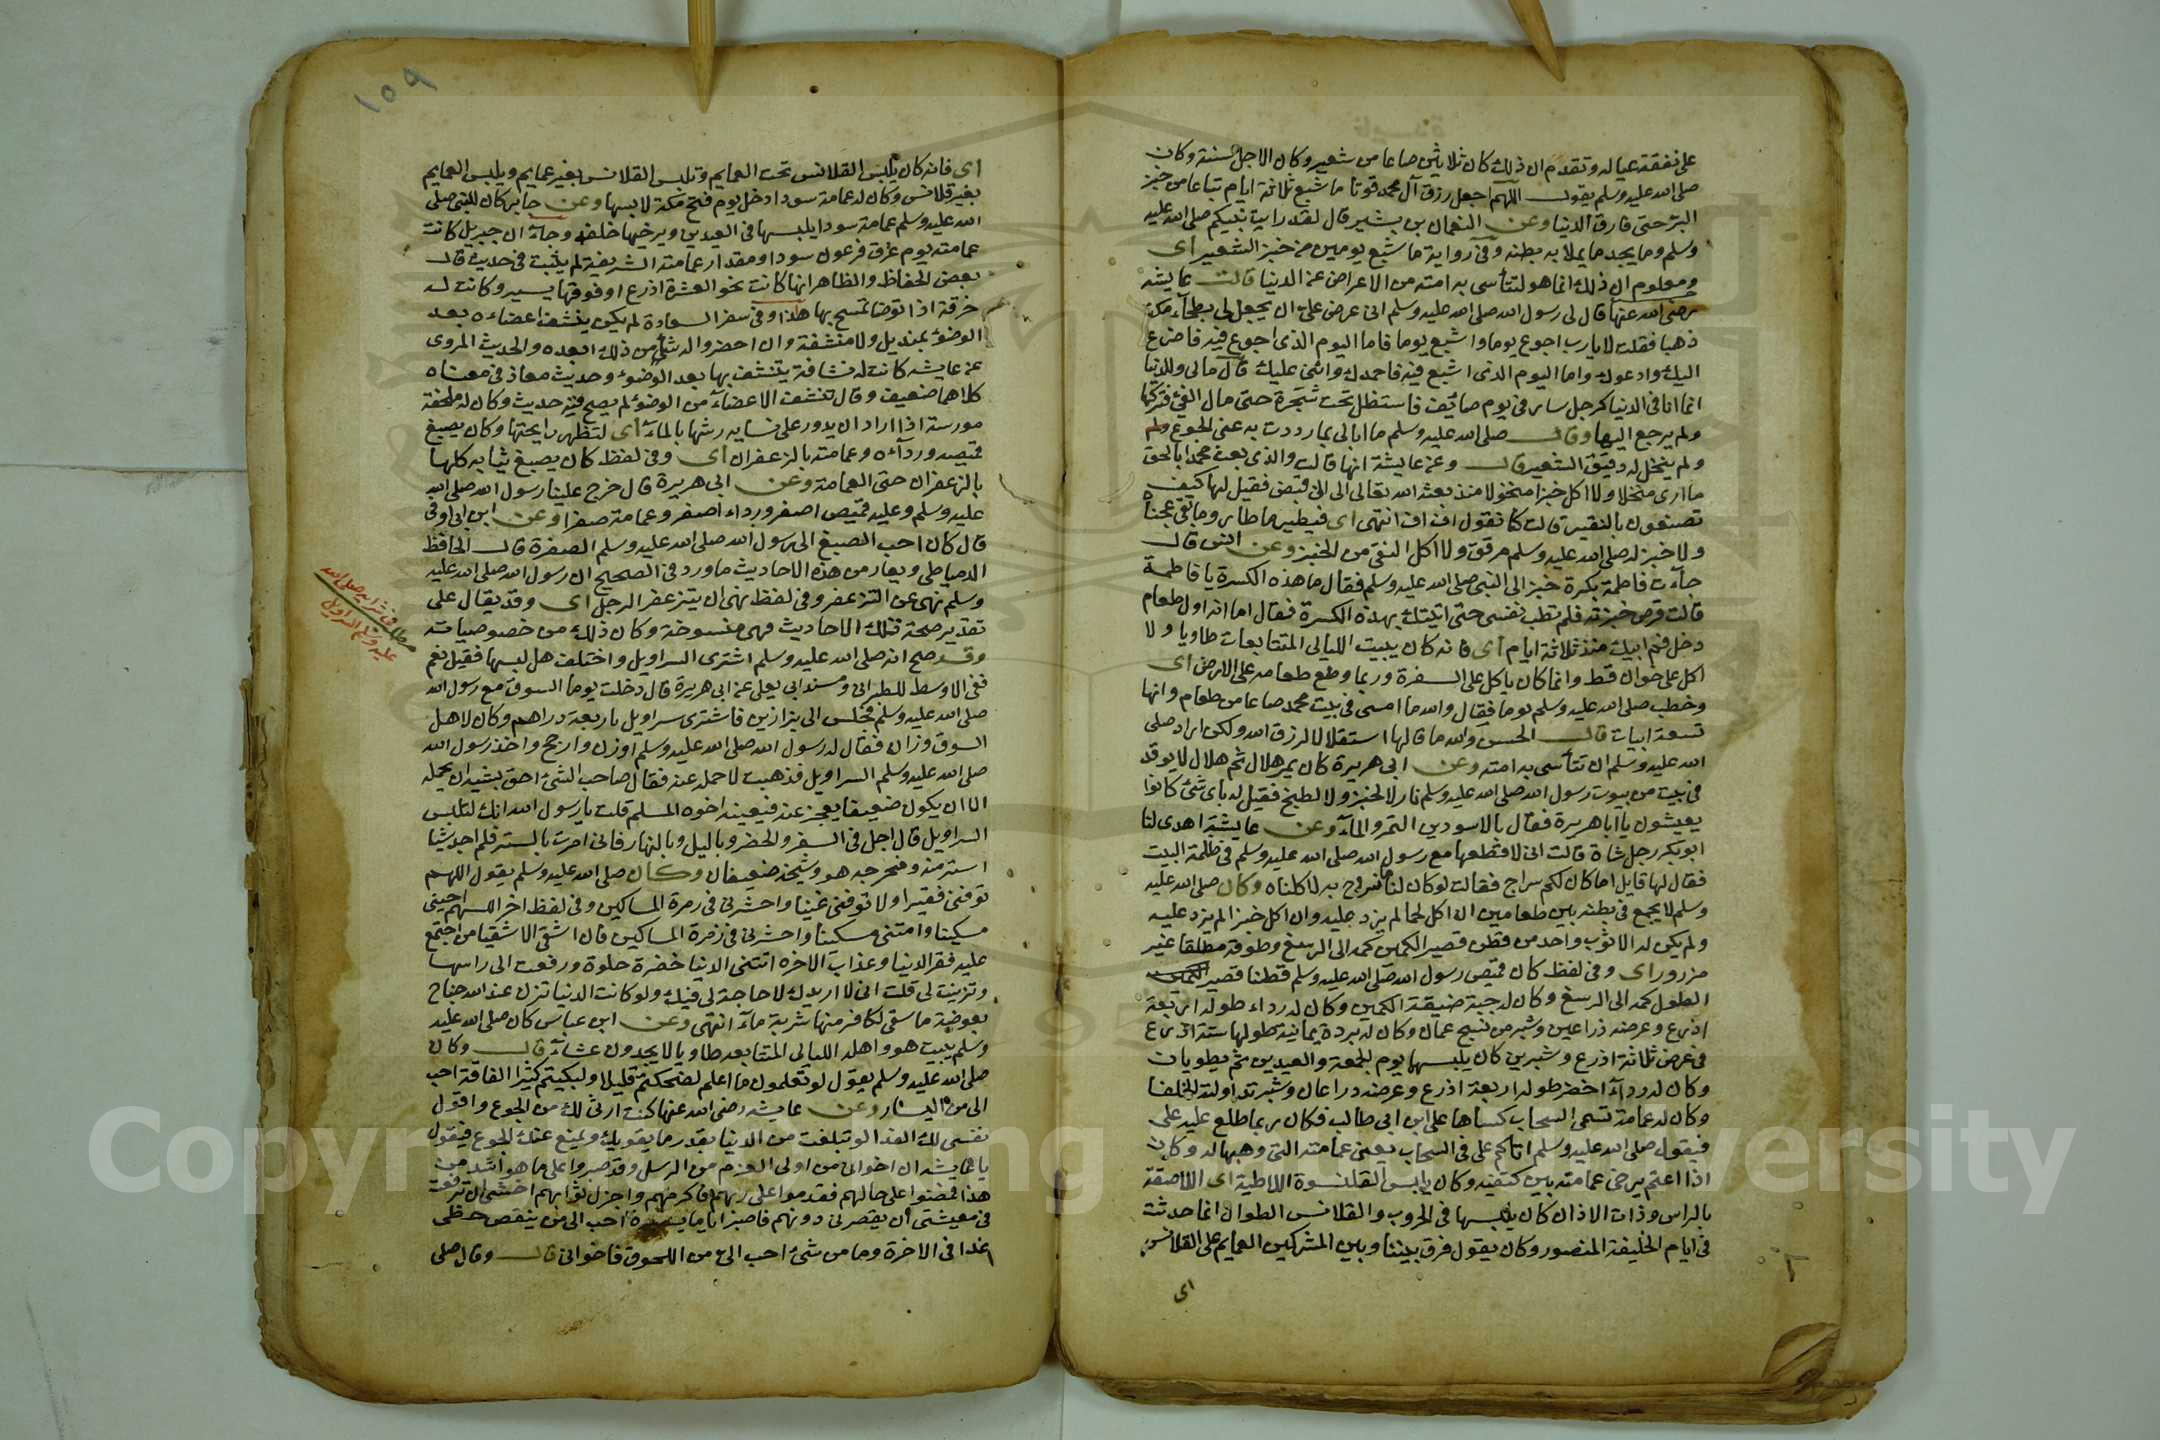 على نفقة عياله وتقدم ان ذلك كان ثلاثين صاعا من شعير وكان الاجل لسنة وكان
صلى الله عليه وسلم يقول اللهم اجعل رزق آل محمد قوتا ما شبع ثلاثة ايام تباعا من خبز
البر حتى فارق الدنيا وعن النعمان بن بشير قال لقد رايت نبيكم صلى الله عليه
وسلم وما يجد ما يملا به بطنه وفى رواية ما شبع يومين من خبز الشعير اى
ومعلوم ان ذلك انما هو لتتأسى به امته من الاعراض عن الدنيا قالت عايشه
رضى الله عنها قال لى رسول الله صلى الله عليه وسلم انى عرض على ان يجعل لى بطحآء مكة
ذهبا فقلت لا يارب اجوع يوما واشبع يوما فاما اليوم الذى اجوع فيه فاضرع
اليك وادعوك واما اليوم الذى اشبع فيه فاحمدك واثنى عليك قال مالى وللدنيا
انما انا فى الدنيا كرجل سار فى يوم صائف فاستظل تحت شجرة حتى مال الفئ فتركها
ولم يرجع اليها وقال صلى الله عليه وسلم ما ابالى بما رددت به عنى الجوع ولم
ولم ينخل له دقيق الشعير قال وعن عايشة انها قالت والذى بعث محمدا بالحق
ما ارى منخلا ولا اكل خبزا منخولا منذ بعثه الله تعالى الى ان قبض فقيل لها كيف
تصنعون بالشعير قالت كنا نقول اف اف انتهى اى فيطير ما طار وما بقى عجناه
ولا خبز له صلى الله عليه وسلم مرقق ولا اكل النقى من الخبز وعن انس قال
جآءت فاطمة بكسرة خبز الى النبى صلى الله عليه وسلم فقال ما هذه الكسرة يا فاطمة
قالت قرص خبزته فلم تطب نفسى حتى اتيتك بهذه الكسرة فقال اما انه اول طعام
دخل فم ابيك منذ ثلاثة ايام اى فانه كان يبيت الليالى المتتابعات طاويا ولا
اكل على خوان قط وانما كان ياكل على السفرة وربما وضع طعامه على الارض اى
وخطب صلى الله عليه وسلم يوما فقال والله ما امسى فى بيت محمد صاعا من طعام وانها
تسعة ابيات قال الحسن والله ما قالها استقلالا لرزق الله ولكن اراد صلى
الله عليه وسلم ان تتأسى به امته وعن ابى هريرة كان يمر هلال ثم هلال لا يوقد
فى بيت من بيوت رسول الله صلى الله عليه وسلم نار لا لخبز ولا لطبخ فقيل له باى شئ كانوا
يعيشون يا ابا هريرة فقال بالاسودين التمر والمآء وعن عايشة اهدى لنا
ابو بكر رجل شاة قالت انى لاقطعها مع رسول الله صلى الله عليه وسلم فى ظلمة البيت
فقال لها قايل اما كان لكم سراج فقالت لو كان لنا ما نسرج به لاكلناه وكان صلى الله عليه
وسلم لا يجمع فى بطنه بين طعامين ان اكل لحما لم يزد عليه وان اكل خبزا لم يزد عليه
ولم يكن له الا ثوب واحد من قطن قصير الكمين كمه الى الرسغ وطوقه مطلقا غير
مزرور اى وفى لفظ كان قميص رسول الله صلى الله عليه وسلم قطنا قصير
الطول كمه الى الرسغ وكان له جبة ضيقة الكمين وكان له رداء طوله اربعة
اذرع وعرضه ذراعين وشبر من نسج عمان وكان له بردة يمانية طولها ستة اذرع
فى عرض ثلاثة اذرع وشبرين كان يلبسهما يوم الجمعة والعيدين ثم يطويان
وكان له ردآء اخضر طوله اربعة اذرع وعرضه ذراعان وشبر تداولته الخلفا
وكان له عمامة تسمى السحاب كساها على ابن ابى طالب فكان ربما طلع عليه على
فيقول صلى الله عليه وسلم اتاكم على فى السحاب يعنى عمامته التى وهبها له وكان
اذا اعتم يرخى عمامته بين كتفيه وكان يلبس القلنسوة اللاطية اى اللاصقة
بالراس وذات الاذان كان يلبسها فى الحروب والقلانس الطوال انما حدثت
فى ايام الخليفة المنصور وكان يقول فرق بيننا وبين المشركين العمايم على القلانس
اى
١٥٩
اى فانه كان يلبس القلانس تحت العمايم وتلبس القلانس بغير عمايم ويلبس العمايم
بغير قلانس وكان له عمامة سودا دخل يوم فتح مكة لابسها وعن جابر كان للنبى صلى
الله عليه وسلم عمامة سودا يلبسها فى العيدين ويرخيها خلفه وجآء ان جبريل كانت
عمامته يوم غرق فرعون سودا ومقدار عمامته الشريفة لم يثبت فى حديث قال
بعض الحفاظ والظاهر انها كانت نحو العشرة اذرع او فوقها بيسير وكانت له
خرقة اذا توضا تمسح بها هذا وفى سفر السعادة لم يكن ينشف اعضاءه بعد
الوضوء بمنديل ولا منشفة وان احضروا له شئ من ذلك ابعده والحديث المروى
عن عايشه كانت له نشافة يتنشف بها بعد الوضوء وحديث معاذ فى معناه
كلاهما ضعيف وقال تنشف الاعضآء من الوضوء لم يصح فيه حديث وكان له ملحفة
مورسة اذا اراد ان يدور على نسايه رشها بالمآء اى لتظهر رايحتها وكان يصبغ
قميصه وردآءه وعمامته بالزعفران اى وفى لفظ كان يصبغ ثيابه كلها
بالزعفران حتى العمامة وعن ابى هريرة قال خرج علينا رسول الله صلى الله
عليه وسلم وعليه قميص اصفر ورداء اصفر وعمامة صفرا وعن ابن ابى اوفى
قال كان احب الصبغ الى رسول الله صلى الله عليه وسلم الصفرة قال الحافظ
الدمياطى ويعارض هذه الاحاديث ما ورد فى الصحيح ان رسول الله صلى الله عليه
وسلم نهى عن التزعفر وفى لفظ نهى ان يتزعفر الرجل اى وقد يقال على
تقدير صحة تلك الاحاديث فهى منسوخة وكان ذلك من خصوصياته
وقد صح انه صلى الله عليه وسلم اشترى السراويل واختلف هل لبسها فقيل نعم
ففى الاوسط للطبرانى ومسند ابى يعلى عن ابى هريرة قال دخلت يوما السوق مع رسول الله
صلى الله عليه وسلم فجلس الى بزازين فاشترى سراويل باربعة دراهم وكان لاهل
السوق وزان فقال له رسول الله صلى الله عليه وسلم اوزن وارجح واخذ رسول الله
صلى الله عليه وسلم السراويل فذهبت لاحمله عنه فقال صاحب الشئ احق بشيئه ان يحمله
الا ان يكون ضعيفا يعجز عنه فيعينه اخوه المسلم قلت يا رسول الله انك لتلبس
السراويل قال اجل فى السفر والحضر وبالليل وبالنهار فانى امرت بالستر فلم اجد شيا
استر منه ومخرجه هو وشيخه ضعيفان وكان صلى الله عليه وسلم يقول اللهم
توفنى فقيرا ولا توفنى غنيا واحشرنى فى زمرة المساكين وفى لفظ اخر اللهم احينى
مسكينا وامتنى مسكينا واحشرنى فى زمرة المساكين فان اشقى الاشقيا من اجتمع
عليه فقر الدنيا وعذاب الاخره اتتنى الدنيا خضرة حلوة ورفعت الى راسها
وتزينت لى قلت انى لا اريدك لا حاجة لى فيك ولو كانت الدنيا تزن عند الله جناح
بعوضة ما سقى لكافر منها شربة مآء انتهى وعن ابن عباس كان صلى الله عليه
وسلم يبيت هو واهله الليالى المتتابعة طاويا لا يجدون عشآء قال وكان
صلى الله عليه وسلم يقول لو تعلمون ما اعلم لضحكتم قليلا ولبكيتم كثيرا الفاقة احب
الى من اليسار وعن عايشه رضى الله عنها كنت ارثى لك من الجوع واقول
نفسى لك الفدا لو تبلغت من الدنيا بقدر ما يقويك ويمنع عنك الجوع فيقول
يا عايشه ان اخوانى من اولى العزم من الرسل وقد صبروا على ما هو اشد من
هذا فمضوا على حالهم فقدموا على ربهم فاكرمهم واجزل ثوابهم اخشى ان ترفهت
فى معيشتى ان يقصر بى دونهم فاصبر اياما يسيرة احب الى من ينقص حظى
غدا فى الاخرة وما من شئ احب الى من اللحوق فاخوانى قال وقال صلى
مطلب فى شرايه صلى الله
عليه وسلم السراويل
Copyright © King Saud University